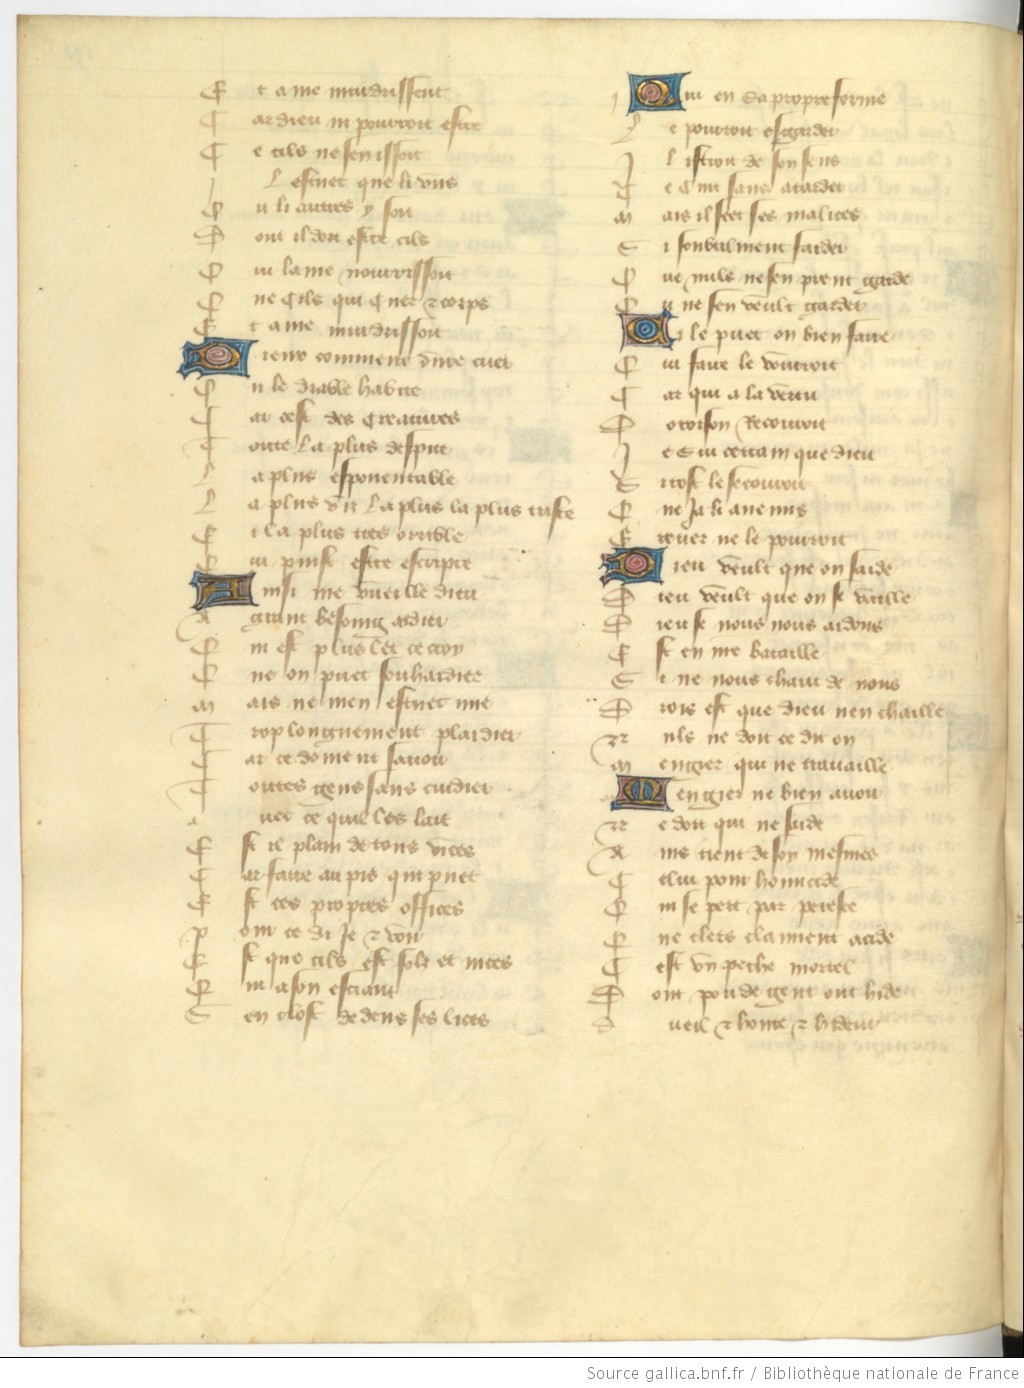 Et ame murdrissent
Car dieu ni pourroit estre
Ce cils nesen issoit
Il estuet que li vns
Ou li autres y soit
Dont il doit estre cils
Qui lame nourrissoit
Ne cils qui et corps
Et ame murdrissoit
comment cuer
Ou le diable habite
Car cest des creatures
Toute la plus despite
La plus espouentable
La plus vilz la plus la plus triste
Et la plus tres orrible
Qui puist estre escripte
Ainsi me vueille dieu
A grant besoing aidier
Quil est plus let ce croy
Que on puet souhaidier
Mais ne men estuet mie
Trop longuement plaidier
Car ce doiuent sauoir
Toutes gens sans cuidier
Auec ce quil est lait
Est il plain de tous vices
Car faire au pis quil puet
Est ces propres offices
Pour ce di je et voir
Est que cils est folz et nices
Qui a son esciant
Sen clost dedens ses lices
Qui en sa propre forme
Le pourroit esgarder
Il istroit de son sens
Ie cuit sans atarder
Mais il scet ses malices
Si soubtilment farder
Que nuls ne sen prent garde
Ou ne sen veult garder
Si le puet on bien faire
Qui faire le voudroit
Car qui a la vertu
Doroison recourroit
Ie sui certain que dieu
Si tost le secourroit
Que ja li anemis
Greuer ne le pourroit
Dieu veult que on saide
Dieu veult que on se vaille
Dieu se nous nous aidons
Est en me bataille
Si ne nous chaut de nous
Drois est que dieu nen chaille
Nuls ne doit ce dit on
Mengier qui ne trauaille
Mengier ne bien auoir
Ne doit qui ne saide
Ains tient de soy mesmes
Celui pour homicide
Qui se pert par peresce
Que clers claiment acide
Cest vn pechie mortel
Dont pou de gent ont hide
Dueil et honte et hideur